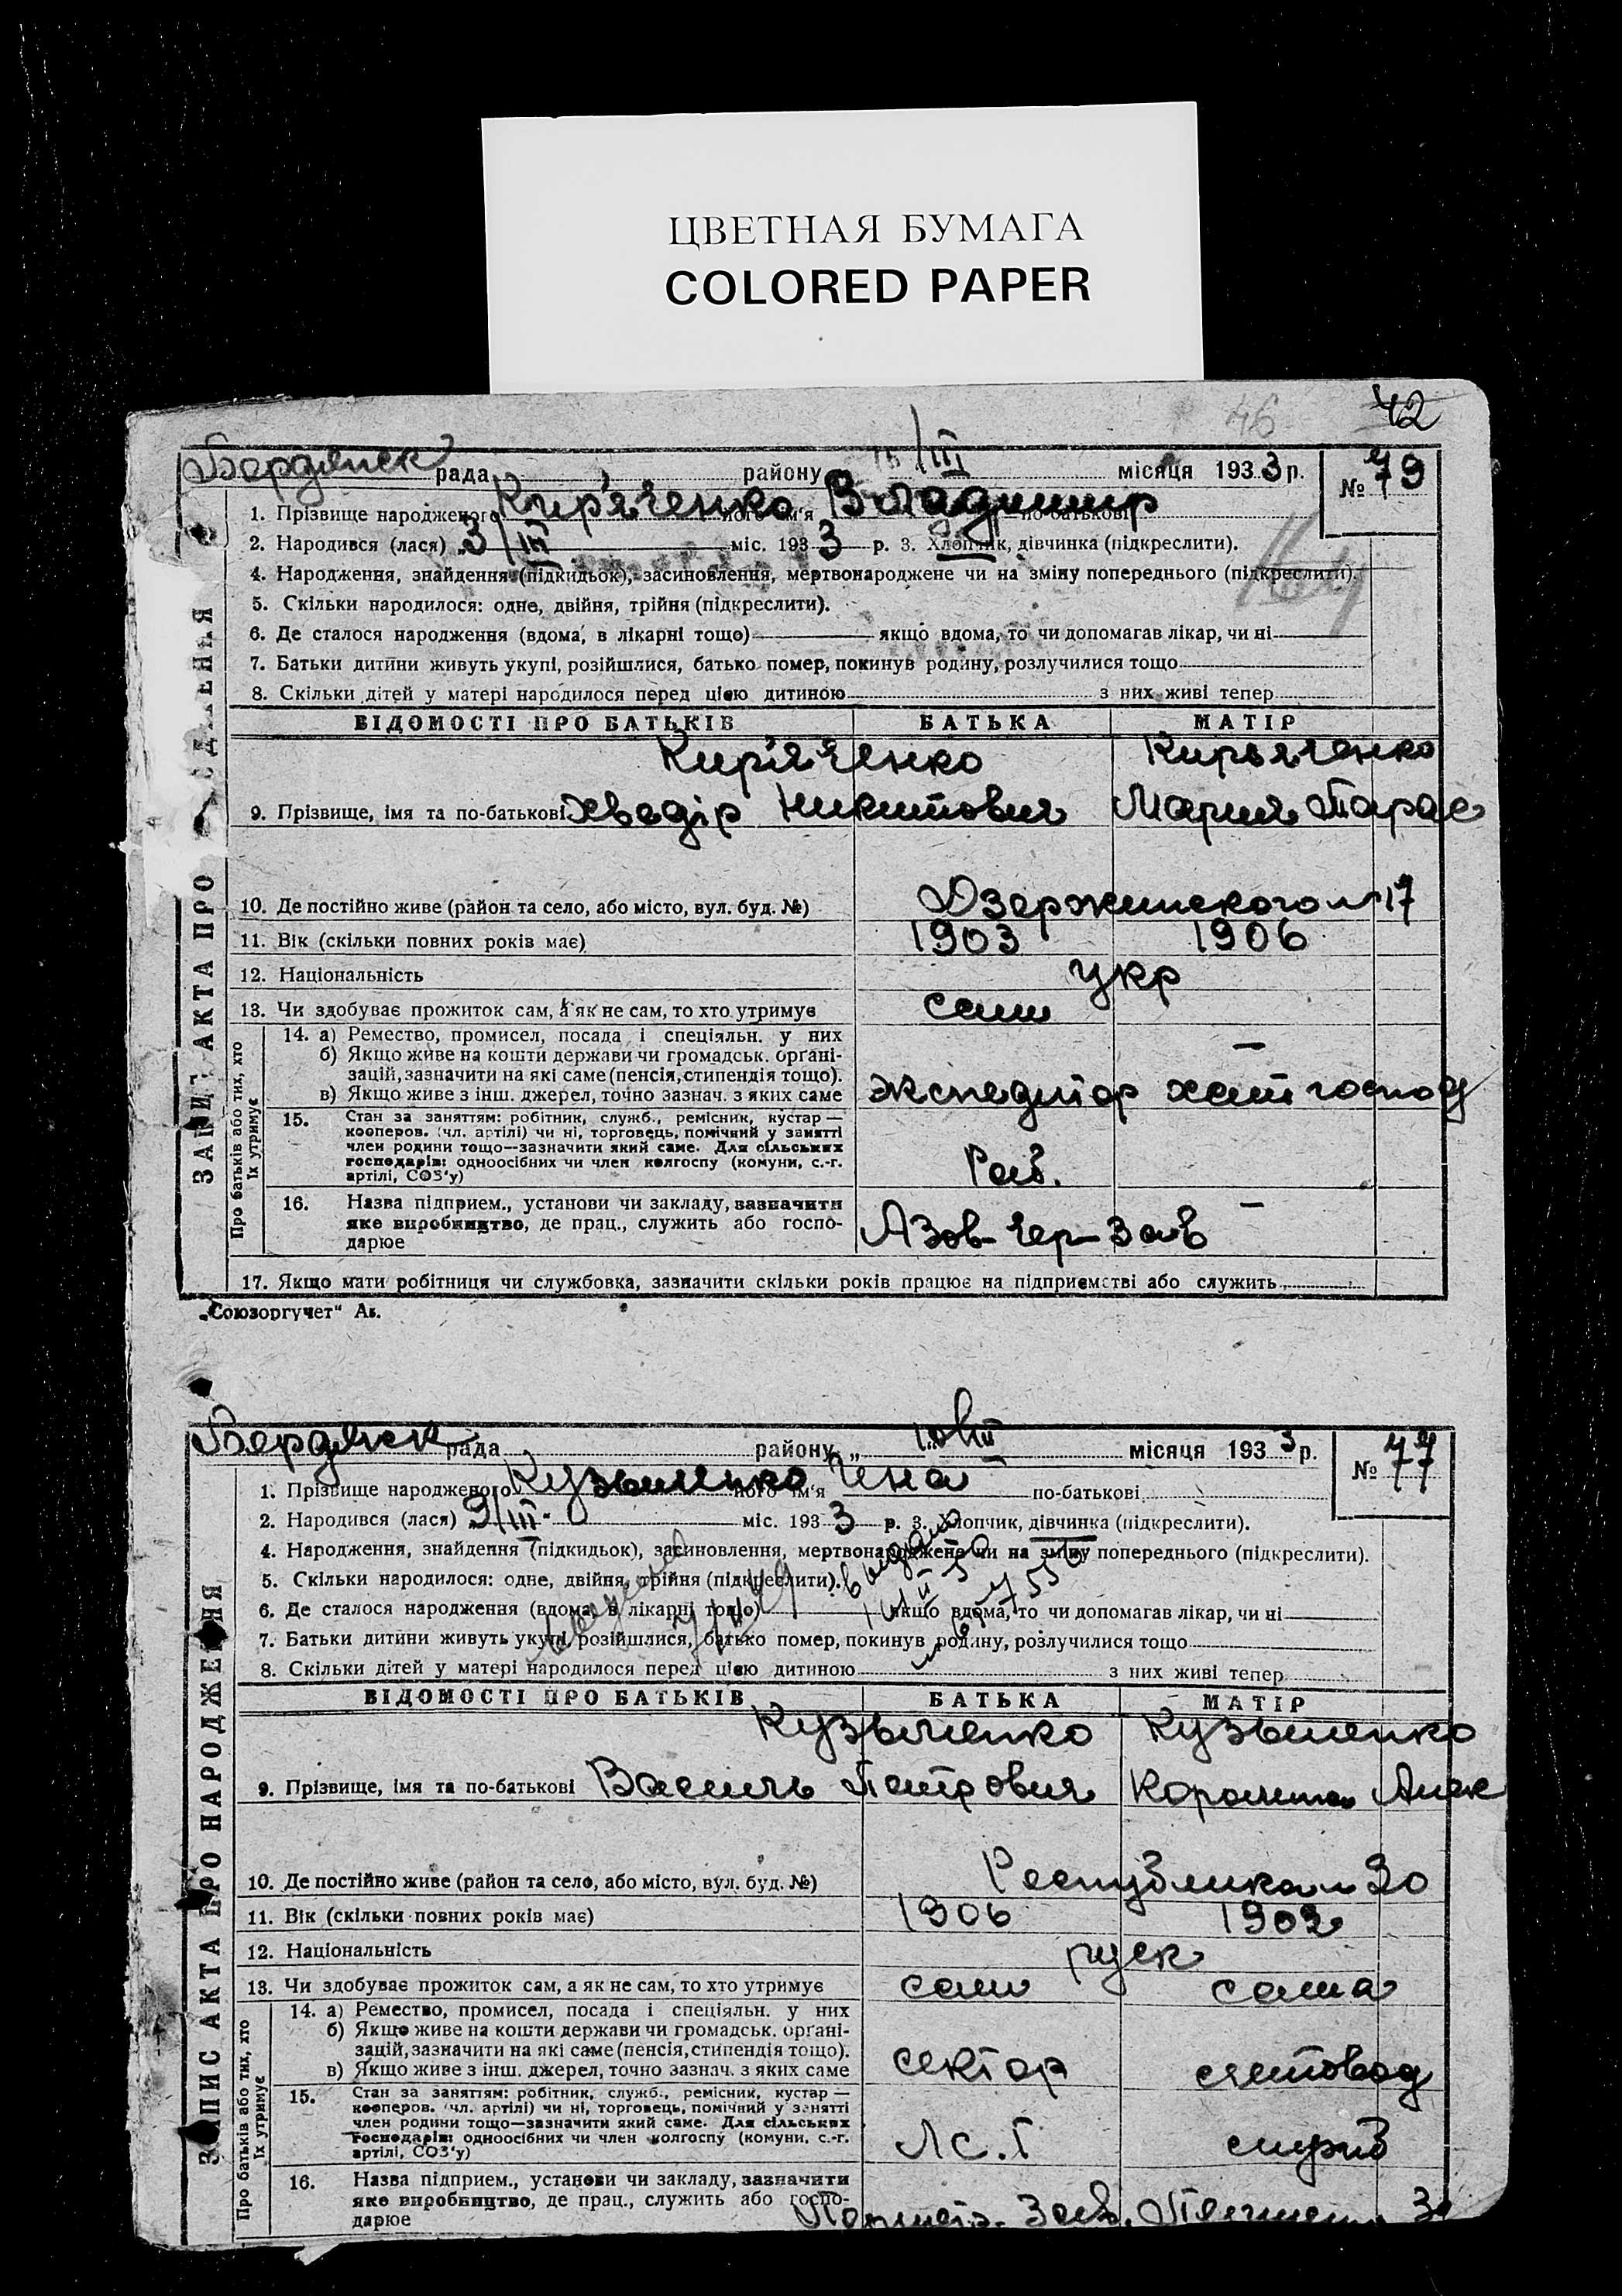 ЦВЕТНАЯ БУМАГА
COLORED PAPER
46 42
Бердянск рада района /III місяця 1933 р. № 79
1. Прізвище народженого Кир'яченко його ім'я Владимир по-батькові
2. Народився (лася) 3/III міс. 1933 р. 3. Хлопчик, дівчинка (підкреслити).
4. Народження, знайдення (підкидьок), засиновлення, мертвонароджене чи на зміну попереднього (підкреслити).
5. Скільки народилося: одне, двійня, трійня (підкреслити).
6. Де сталося народження (вдома, в лікарні тощо) якщо вдома, то чи допомагав лікар, чи ні
7. Батьки дитини живуть укупі, розійшлися, батько помер, покинув родину, розлучилися тощо
8. Скільки дітей у матері народилося перед цією дитиною з них живі тепер
ВІДОМОСТІ ПРО БАТЬКІВ БАТЬКА МАТІР
Кир'яченко Кирьяченко
9. Прізвище, імя та по-батькові Хведір Никитович Мария Тарас
10. Де постійно живе (район та село, або місто, вул. буд. №) Дзержинского 17
11. Вік (скільки повних років має) 1903 1906
12. Національність укр
13. Чи здобуває прожиток сам, а як не сам, то хто утримує сам
14. а) Ремество, промисел, посада і спеціяльн. у них
б) Якщо живе на кошти держави чи громадськ. органі-
зацій, зазначити на які саме (пенсія, стипендія тощо). —
в) Якщо живе з інш. джерел, точно зазнач. з яких саме экспедитор хатгоспод
15. Стан за заняттям: робітник, служб., ремісник, кустар —
кооперов. (чл. артілі) чи ні, торговець, помічний у занятті
член родини тощо—зазначити який саме. Для сільських
господарів: одноосібних чи член колгоспу (комуни, с.-г.
артілі, СОЗ'у) Раб.
16. Назва підприєм., установи чи закладу, зазначити
яке виробництво, де прац., служить або госпо-
дарює Азов-чер-Зав —
17. Якщо мати робітниця чи службовка, зазначити скільки років працює на підприємстві або служить
ЗАПИС АКТА ПРО НАРОДЖЕННЯ
Про батьків або тих, хто їх утримує
„Союзоргучет“
Бердянск рада району „ 10/III місяця 1933 р. № 77
1. Прізвище народженого Кузьменко його ім'я по-батькові
2. Народився (лася) 9/III міс. 1933 р. 3. Хлопчик, дівчинка (підкреслити).
4. Народження, знайдення (підкидьок), засиновлення, мертвонароджене чи на зміну попереднього (підкреслити).
5. Скільки народилося: одне, двійня, трійня (підкреслити).
6. Де сталося народження (вдома, в лікарні тощо) якщо вдома, то чи допомагав лікар, чи ні
7. Батьки дитини живуть укупі, розійшлися, батько помер, покинув родину, розлучилися тощо
8. Скільки дітей у матері народилося перед цією дитиною з них живі тепер
ВІДОМОСТІ ПРО БАТЬКІВ БАТЬКА МАТІР
Кузьменко Кузьменко
9. Прізвище, імя та по-батькові Василь Петрович
10. Де постійно живе (район та село, або місто, вул. буд. №) Республикан 30
11. Вік (скільки повних років має) 1906 1902
12. Національність руск
13. Чи здобуває прожиток сам, а як не сам, то хто утримує сам сама
14. а) Ремество, промисел, посада і спеціяльн. у них
б) Якщо живе на кошти держави чи громадськ. органі-
зацій, зазначити на які саме (пенсія, стипендія тощо).
в) Якщо живе з інш. джерел, точно зазнач. з яких саме сектор счетовод
15. Стан за заняттям: робітник, служб., ремісник, кустар —
кооперов. (чл. артілі) чи ні, торговець, помічний у занятті
член родини тощо—зазначити який саме. Для сільських
господарів: одноосібних чи член колгоспу (комуни, с.-г.
артілі, СОЗ'у) служб
16. Назва підприєм., установи чи закладу, зазначити
яке виробництво, де прац., служить або госпо-
дарює Зав.
ЗАПИС АКТА ПРО НАРОДЖЕННЯ
Про батьків або тих, хто їх утримує